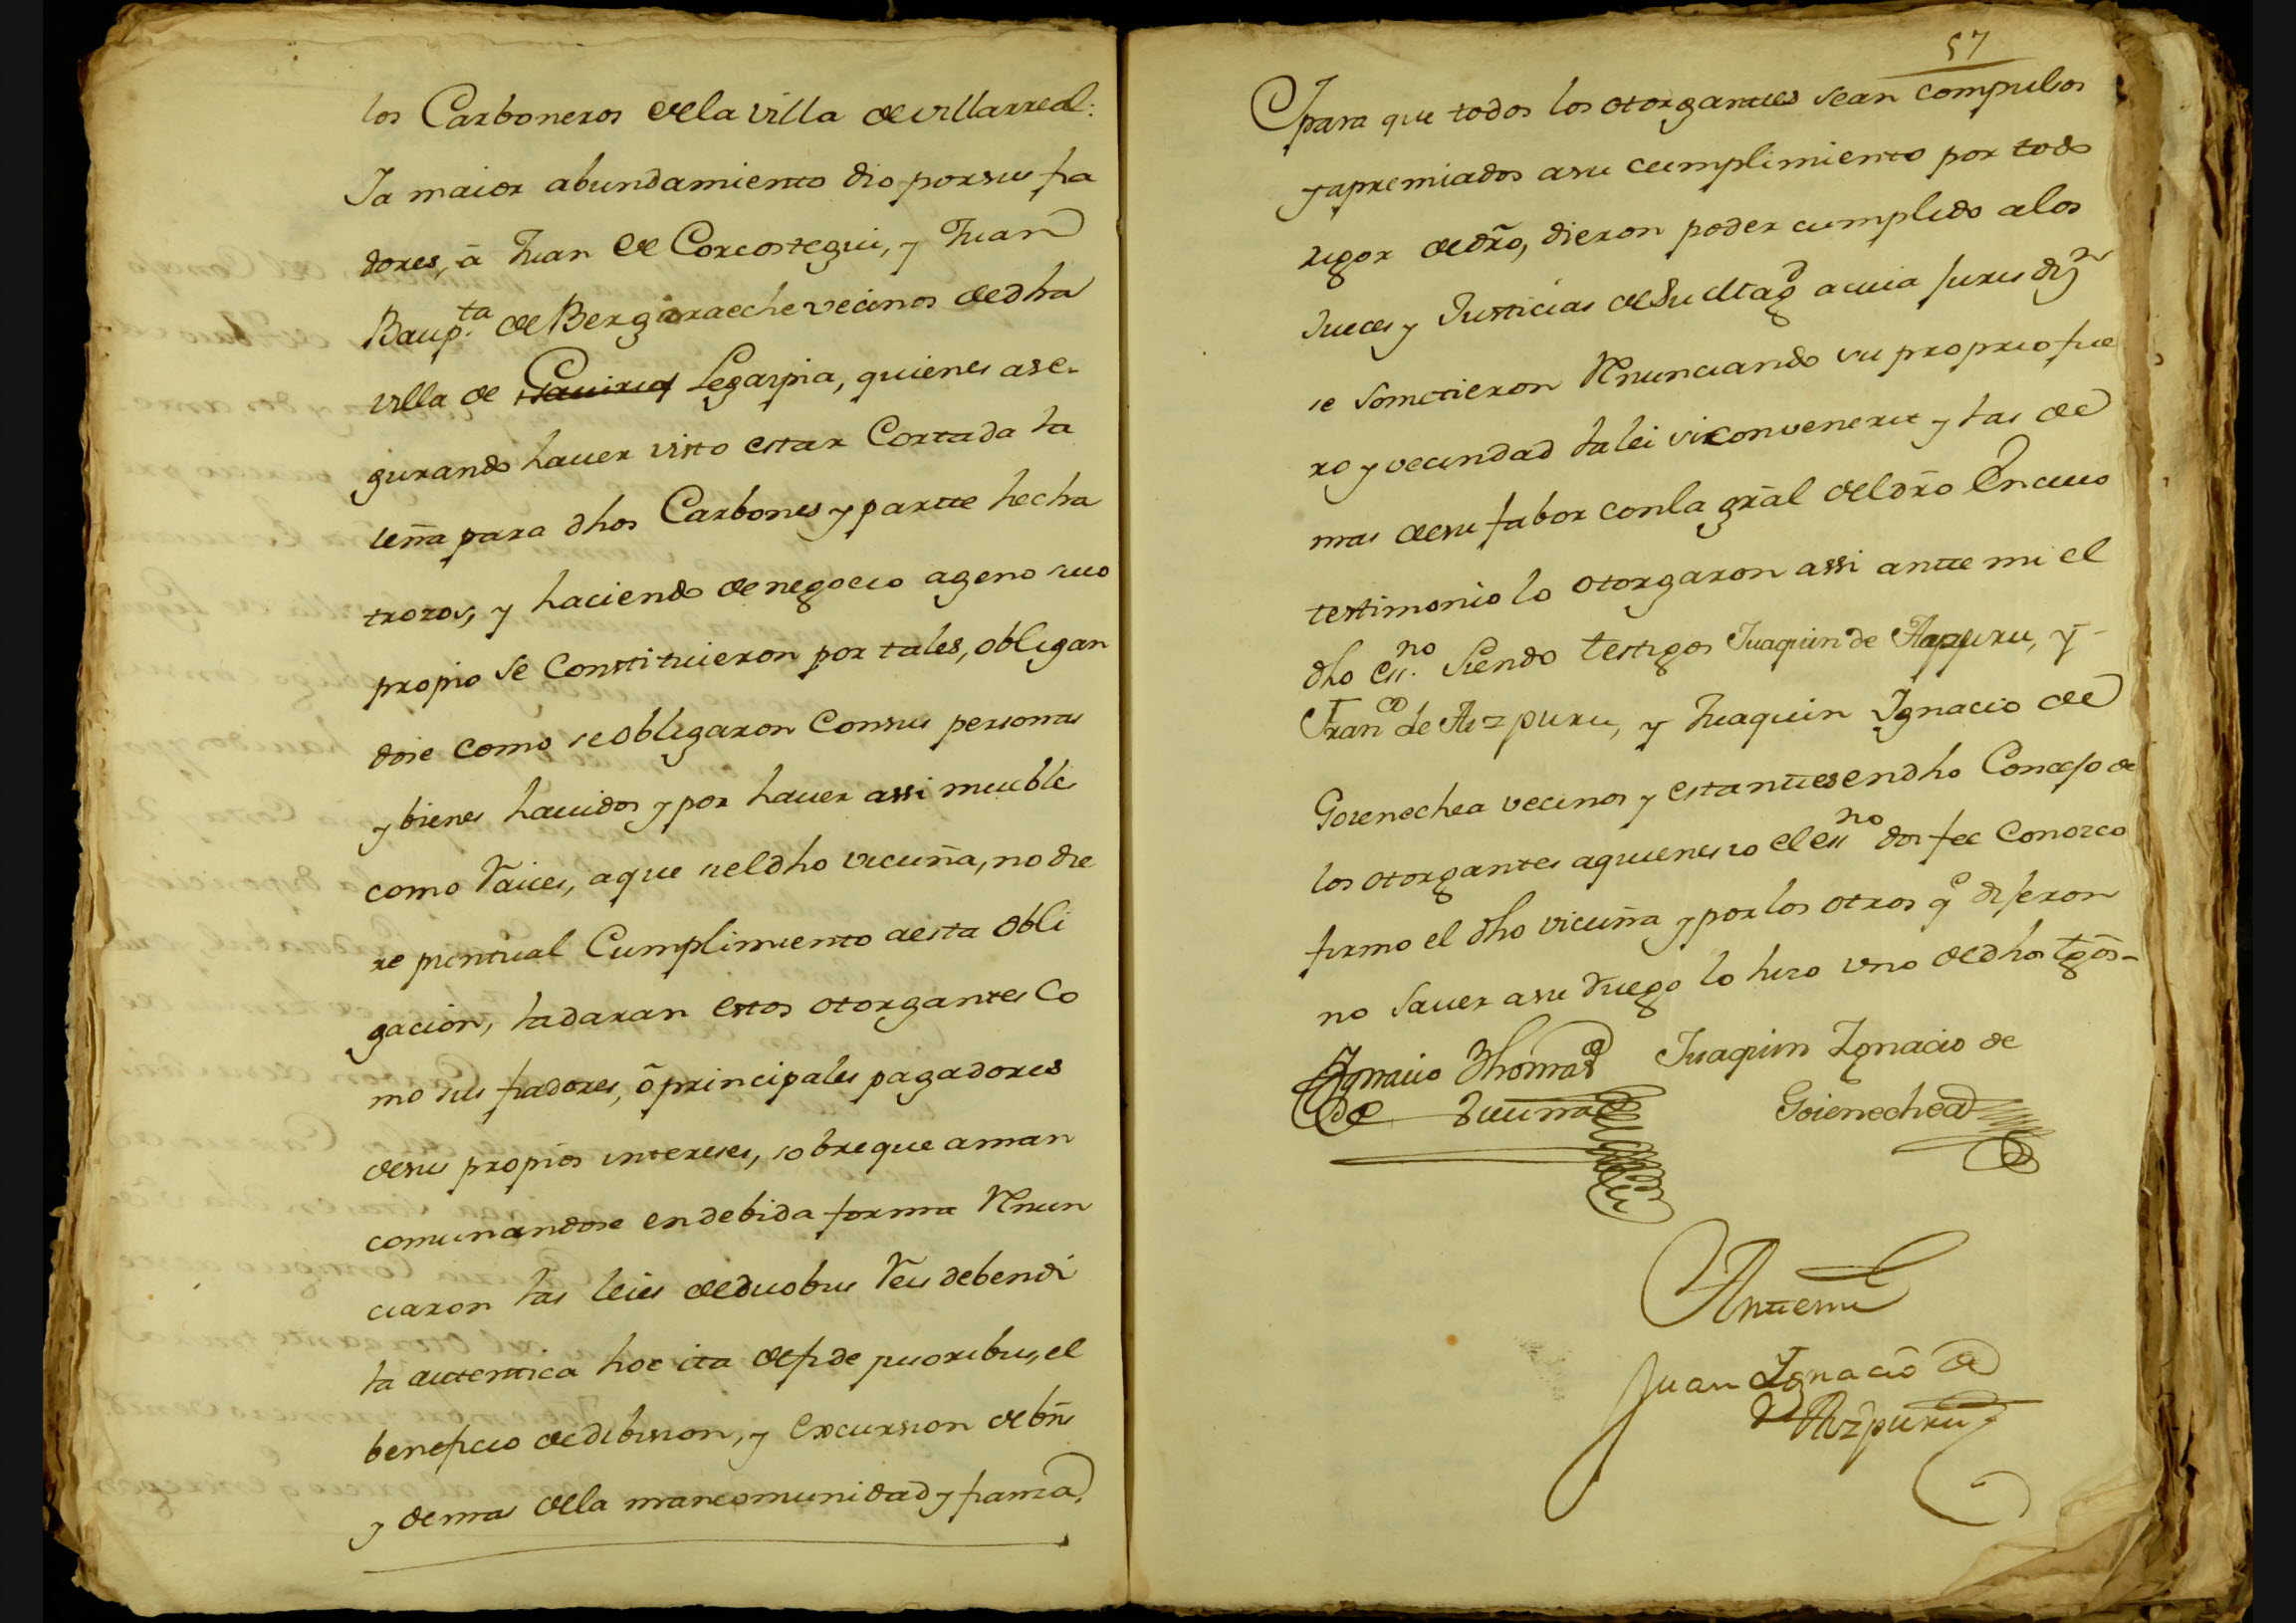 los Carboneros dela villa de villarreal.
Ia maior abundamiento dio por sus fia
dores, á Juan de Corcostegui, y Juan
Baup.ta de Bergaraeche vecinos dedha
villa de Gauiria Legazpia, quienes ase-
gurando hauer visto estar Cortada la
leña para dhos Carbones y parte hecha
trozos, y haciendo de negocio ageno suo
propio se Constituieron por tales, obligan
dose como se obligaron Consus personas
y bienes hauidos y por hauer assi muebles
como raices, aque si eldho vicuña, no die
re puntual Cumplimiento aesta obli
gacion, la daran estos otorgantes Co
mo sus fiadores, ó principales pagadores
desus propios intereses, sobreque aman
comunandose en debida forma renun
ciaron las leies deduobus reis debendi
la autentica hoc ita defide jusoribus, el
beneficio dedibision, y excursion de bñs
y demas dela mancomunidad y fianza.
57
Ipara que todos los otorgantes sean compulsos
y apremiados asu cumplimiento por todo
rigor dedro, dieron poder cumplido alos
Jueces y Justicias de Su Magd acuia Jurisdiz.n
se sometieron renunciando su proprio fue
ro y vecindad la lei siconvenerit y las de
mas desu fabor conla gral deldro En cuio
testimonio lo otorgaron assi ante mi el
dho ess.no Siendo testigos Juaquin de Aizpuru, y
Fran.co de Aizpuru, y Juaquin Ignacio de
Goienechea vecinos y estantes endho Concejo de
los otorgantes aquienes io el essno doi fee Conozco
firmo el dho vicuña y por los otros q dijeron
no Sauer asu ruego lo hizo vno dedhos tgos-
Ignacio Thomas
de Vicuña
Juaquin Ignacio de
Goienechea
Antemi
Juan Ignacio de
Aizpuru